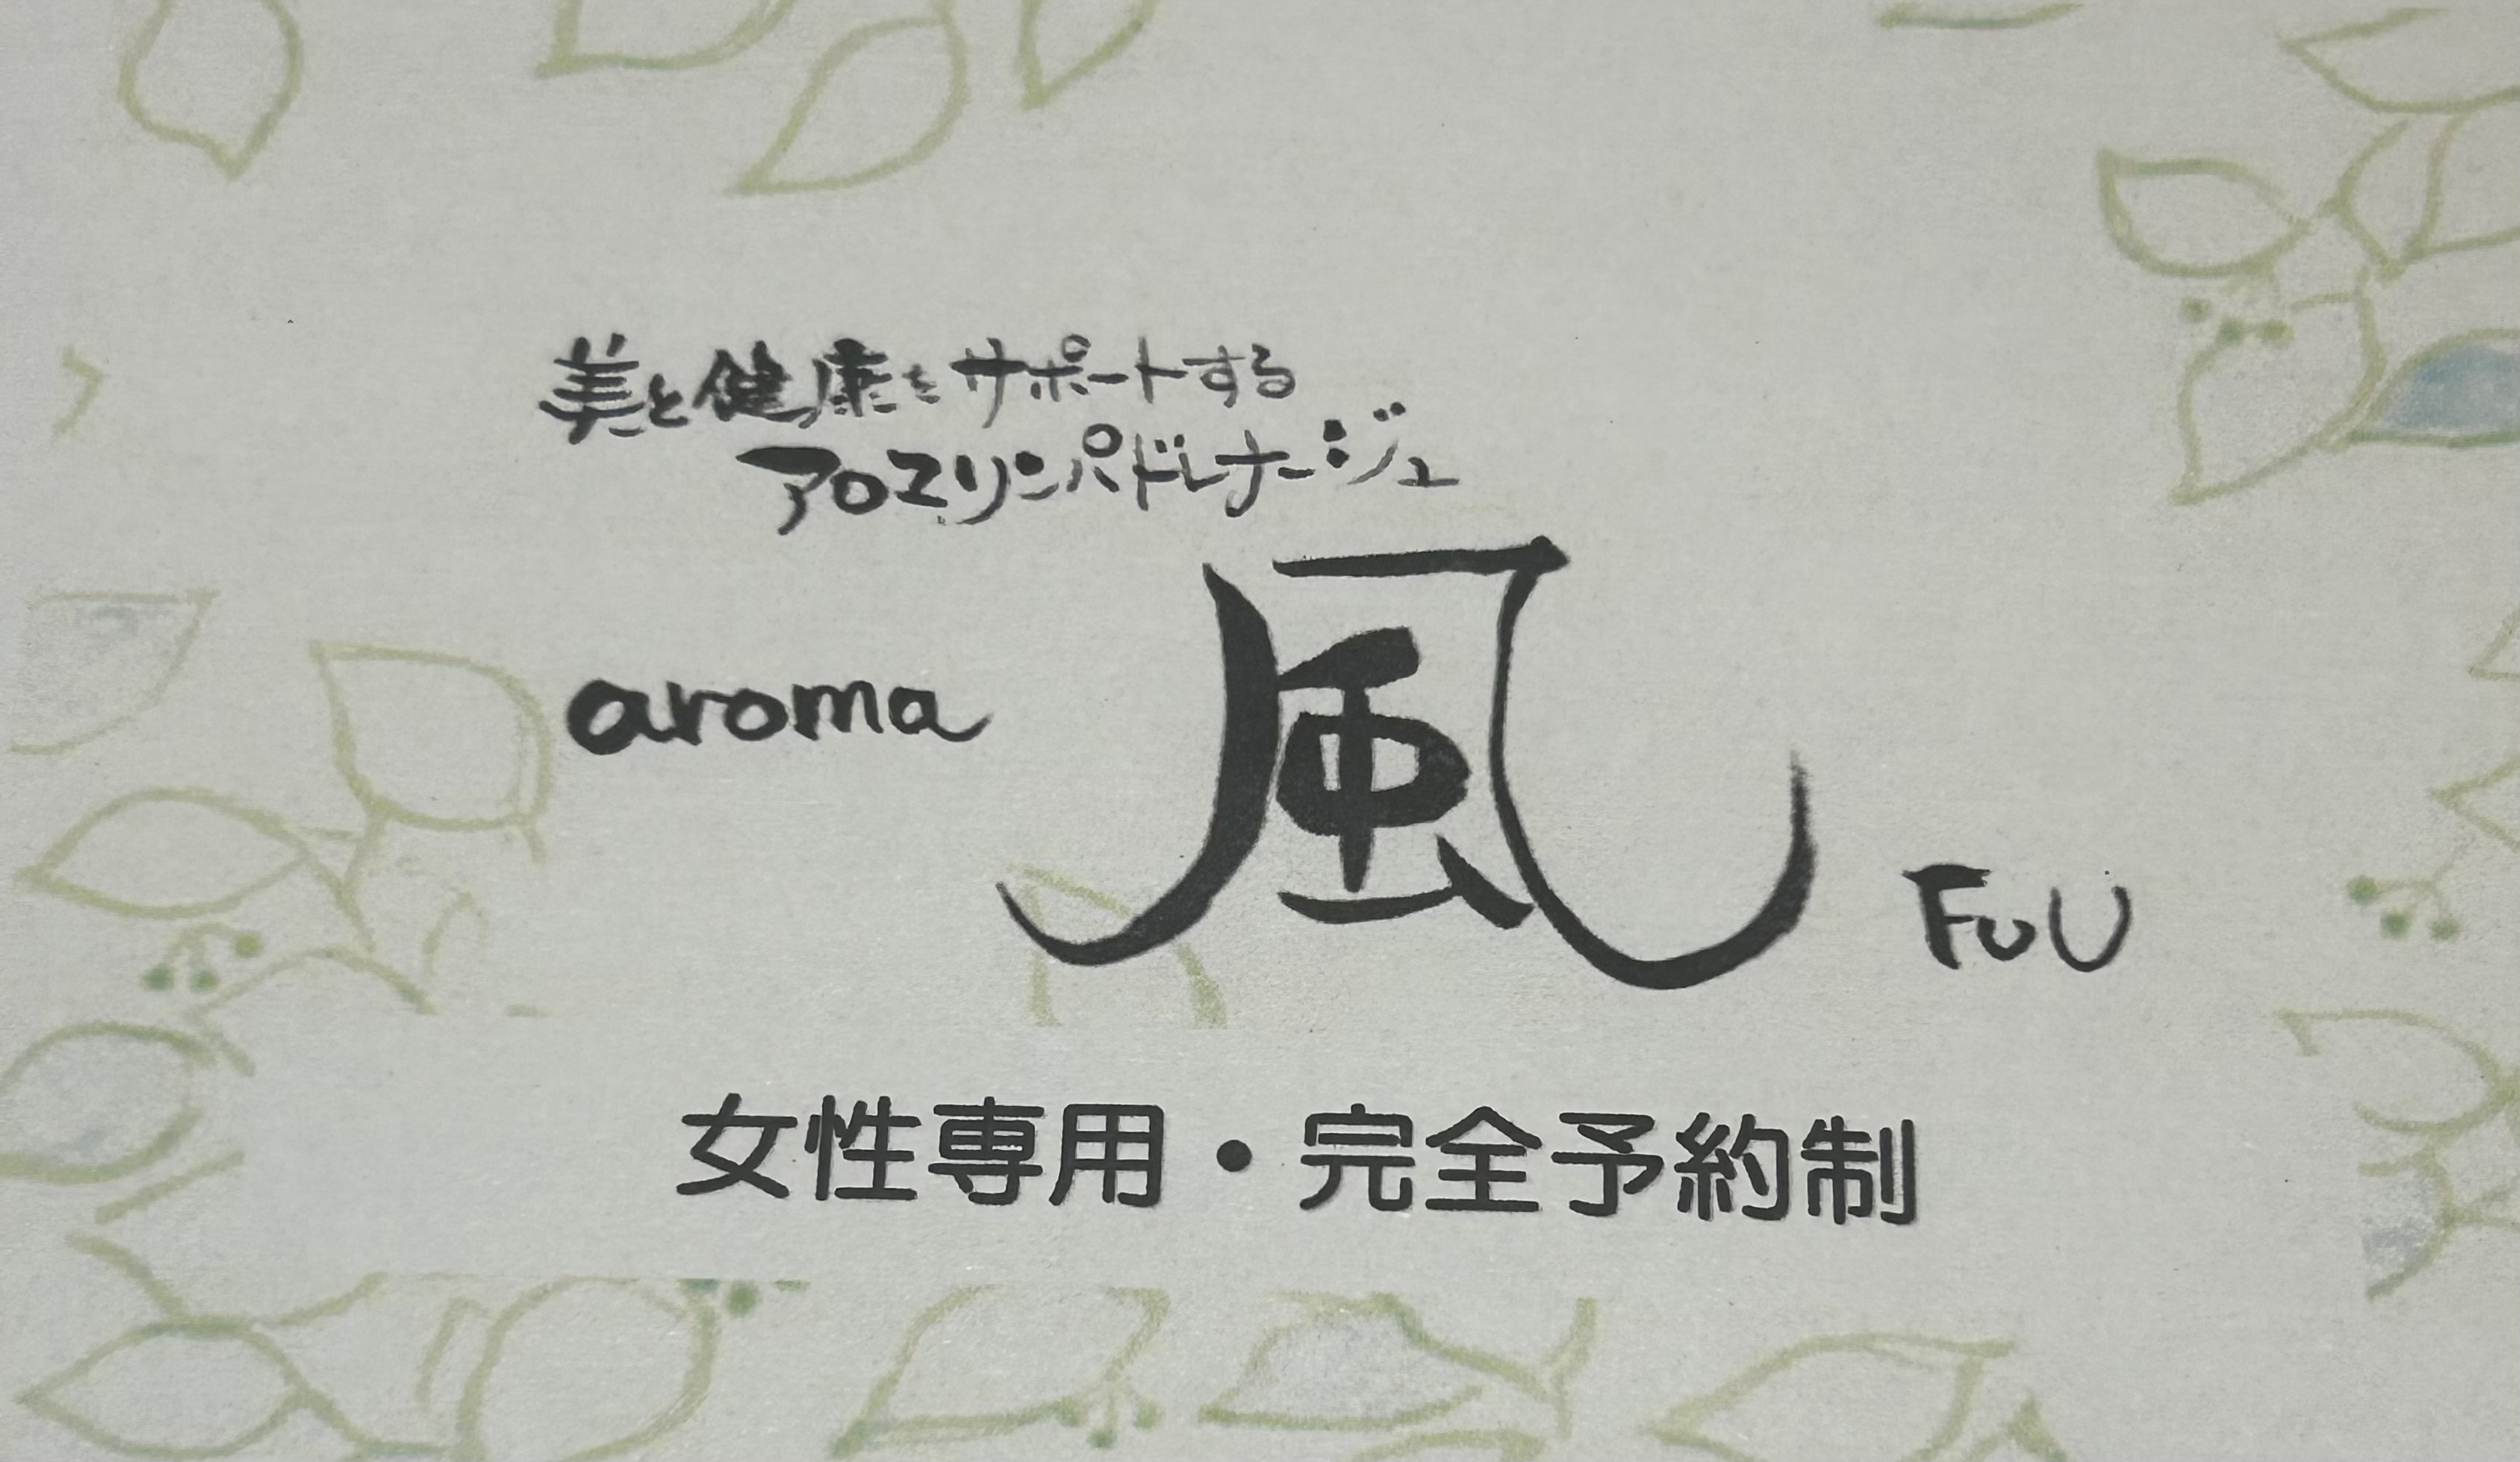 美と健康をサポートする
アロマリンパドレナージュ
aroma 風 FuU
女性専用・完全予約制